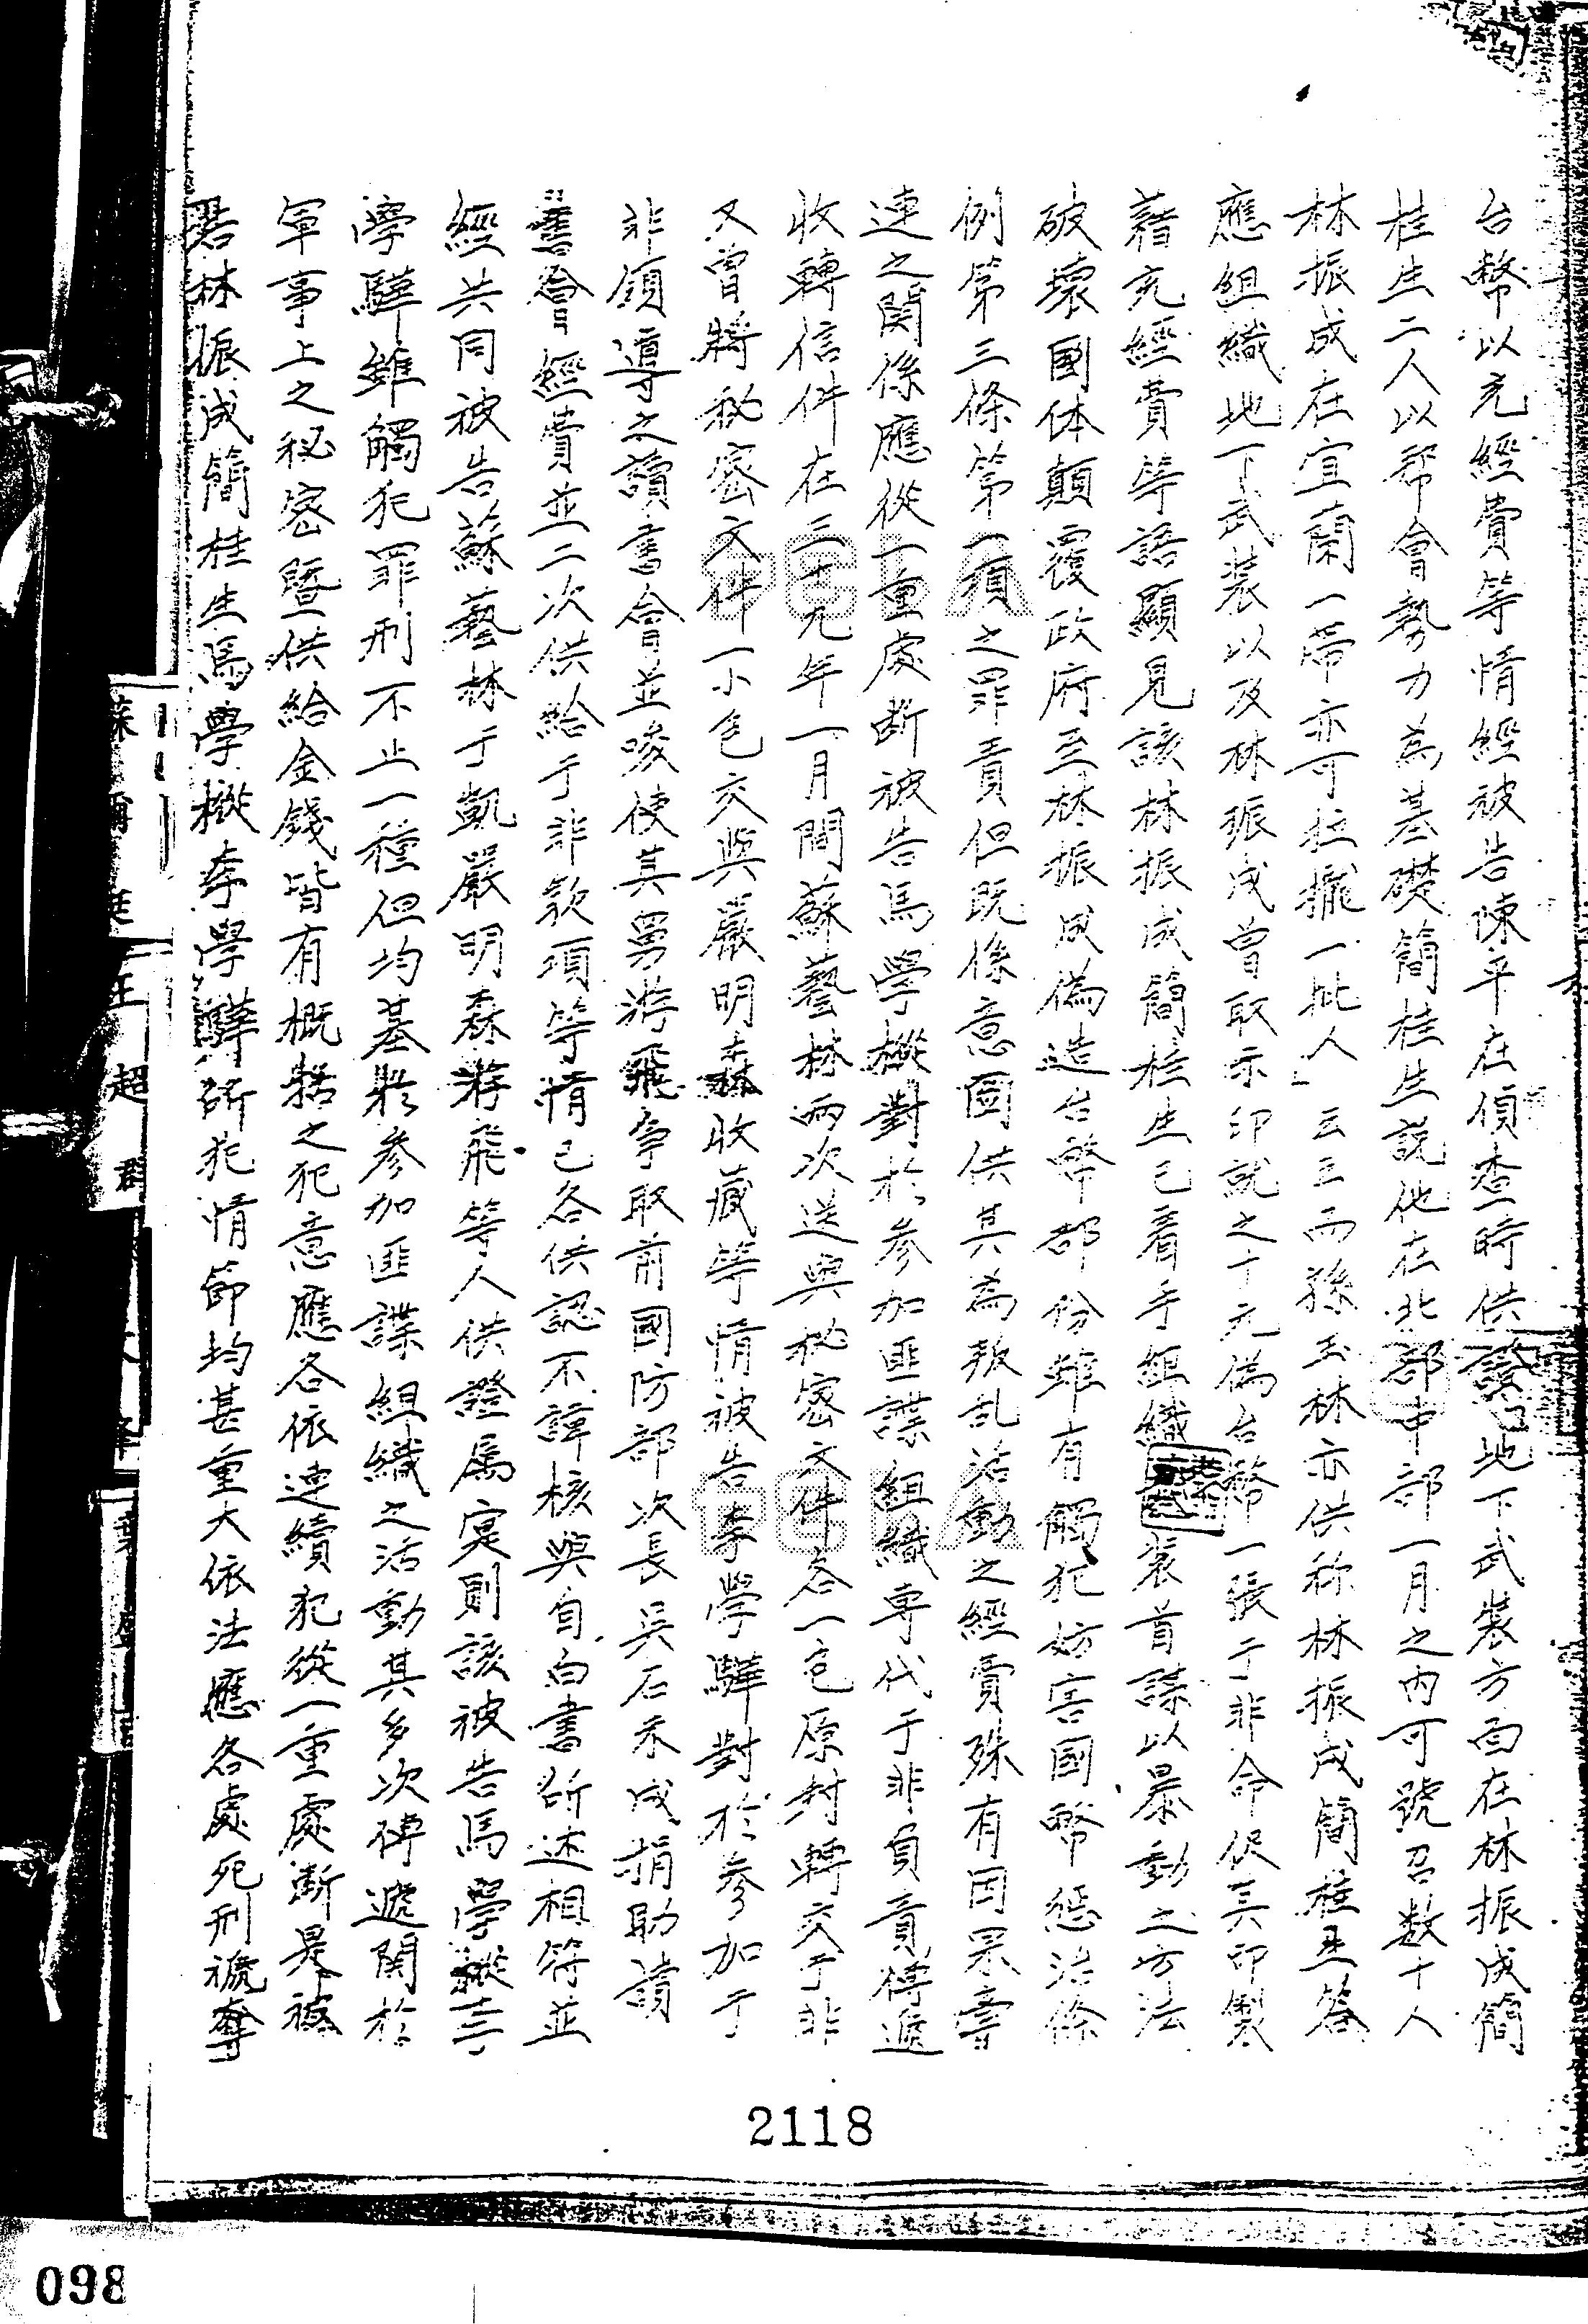 台幣以充經費等情經被告陳平在偵查時供證「地下武裝方面在林振成簡
桂生二人以幫會勢力為基礎簡桂生說他在北部中部一月之內可號召数十人
林振成在宜蘭一帶亦可拉攏一批人」云云而孫玉林亦供称林振成簡桂生答
應組織地下武裝以及林振成曾取示印就之十元偽台幣一張于非命伬其印製
藉充經費等語顯見該林振成簡桂生已着手組織 裝首謀以暴動之方法
破壞國体顛覆政府至林振成偽造台幣部份雖有觸犯妨害國幣懲治條
例第三條第一項之罪責但既係意圖供其為叛乱活動之經費殊有因果牽
連之関係應從一重處断被告馬學樅對於參加匪諜組織専代于非負責傳遞
收轉信件在三十九年一月間蘇藝林两次送與秘密文件各一包原封轉交于非
又曾將秘密文件一小包交與嚴明森收藏等情被告李學驊對於參加于
非領導之讀書會並唆使其舅游飛争取前國防部次長吳石未成捐助讀
書會經費並二次供給于非款項等情已各供認不諱核與自白書所述相符並
經共同被告蘇藝林于凱嚴明森游飛等人供證屬寔則該被告馬學樅李
學驊雖觸犯罪刑不止一種但均基於參加匪諜組織之活動其多次傳遞関於
軍事上之秘密暨供給金錢皆有概括之犯意應各依連續犯從一重處断是被
告林振成簡桂生馬學樅李學驊所犯情節均甚重大依法應各處死刑褫奪
2118
098
超
群